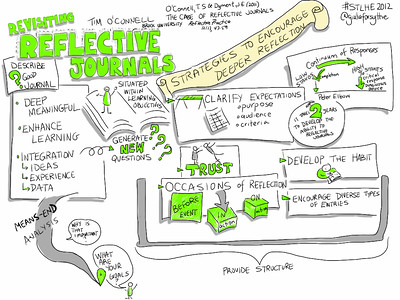 REVISITING
REFLECTIVE
JOURNALS
TIM O'CONNELL
BROCK UNIVERSITY
O'Connell, T.S & Dyment, J.E (2011)
THE CASE OF REFLECTIVE JOURNALS
Reflective Practice
#STLHE 2012
@giuliaforsythe
9 STRATEGIES TO ENCOURAGE
DEEPER REFLECTION
DESCRIBE
A
GOOD
JOURNAL
?
DEEP
MEANINGFUL
ENHANCE
LEARNING
INTEGRATION
IDEAS
EXPERIENCE
DATA
SITUATED
WITHIN
LEARNING
OBJECTIVES
GENERATE
NEW
QUESTIONS
?
CLARIFY EXPECTATIONS
purpose
audience
criteria
Continuum of Responses
Peter Elbow
IT TAKES
2
YEARS
TO DEVELOP
THE
ABILITY TO
REFLECTIVE
JOURNAL
TRUST
DEVELOP THE HABIT
OCCASIONS OF REFLECTION
BEFORE
EVENT
in
action
ON
action
ENCOURAGE DIVERSE TYPES
OF ENTRIES
PROVIDE STRUCTURE
MEANS-END
ANALYSIS
WHY IS
THAT
IMPORTANT
?
WHAT
ARE
YOUR
GOALS?